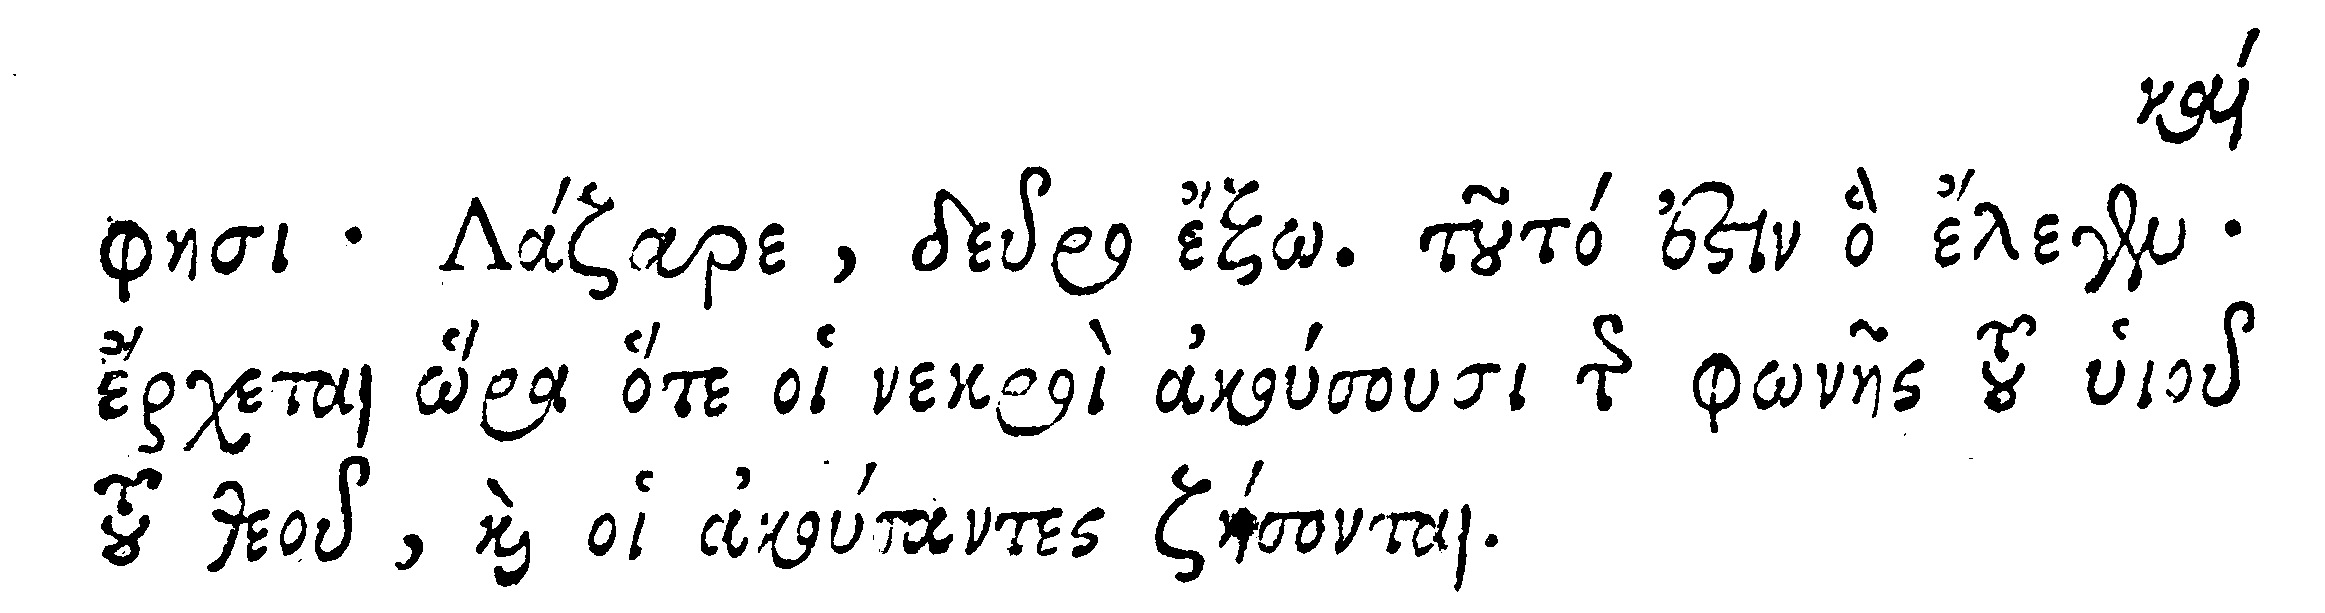 καί
φησι · Λάζαρε, δεῦρο ἔξω. τοῦτό ἐστιν ὃ ἔλεγεν ·
ἔρχεται ὥρα ὅτε οἱ νεκροὶ ἀκούσουσι τῆς φωνῆς τοῦ υἱοῦ
τοῦ θεοῦ, καὶ οἱ ἀκούσαντες ζήσονται.